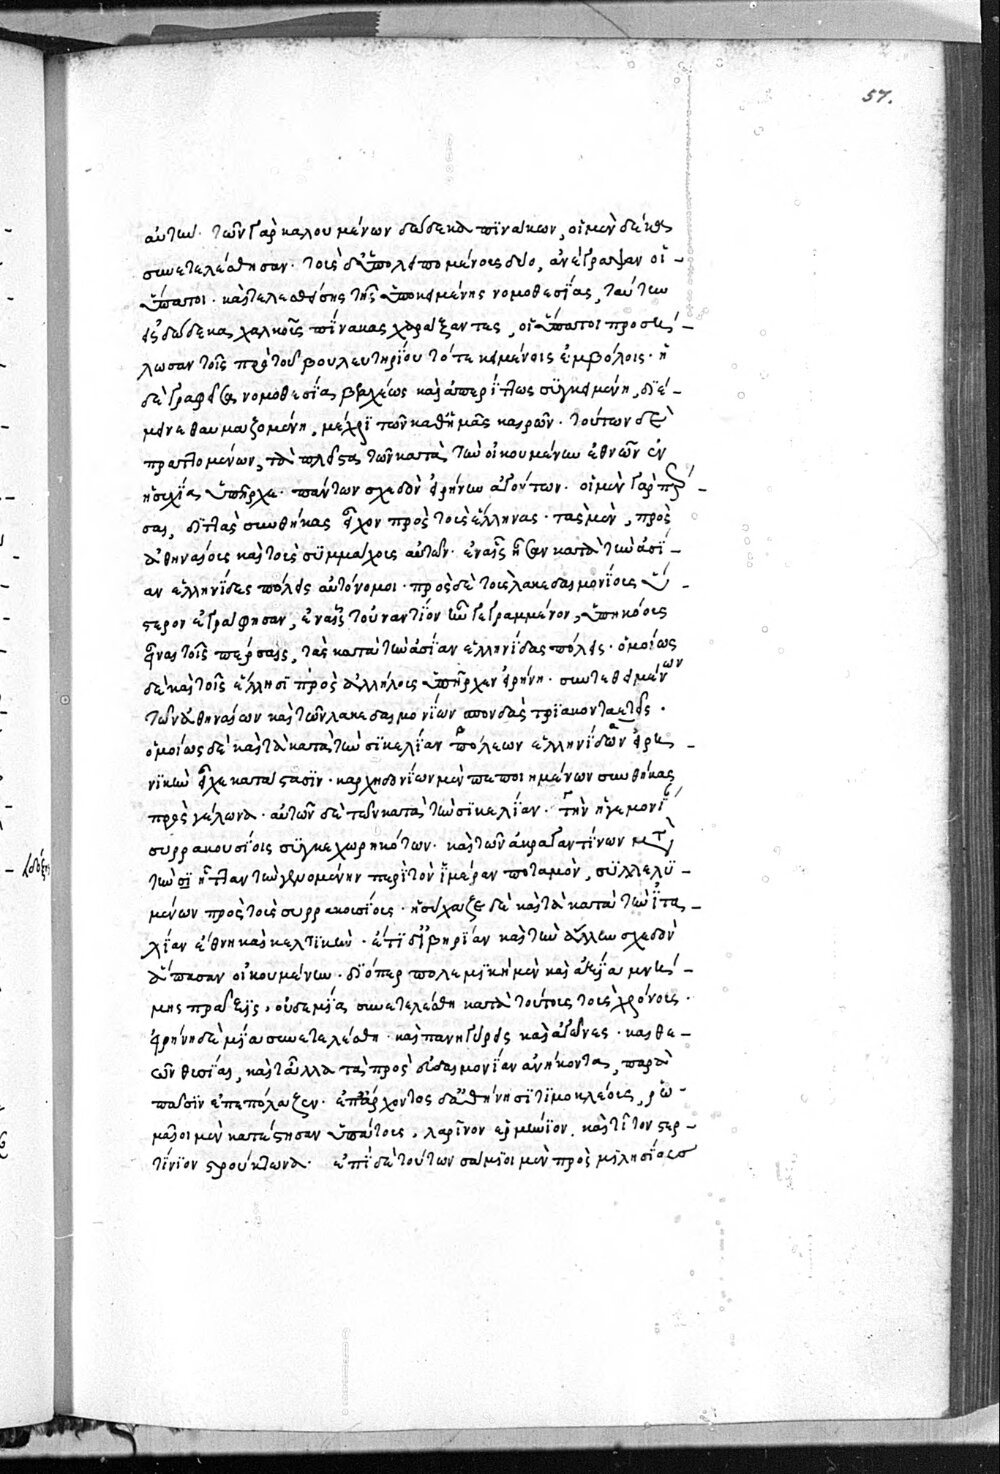 57.
αὐτῶν· τῶν γὰρ καλουμένων δώδεκα πϊνάκων, οἱ μὲν δέκα
συνετελέσθησαν· τοῖς δ' ὑπολειπομένοις δύο, ἀνέγραψαν οἱ -
ὕπατοι· καὶ τελεσθείσης τῆς ὑποκειμένης νομοθεσΐας, ταύτην
εἰς δώδεκα χαλκοῦς πΐνακας χαράξαντες, οἱ ὕπατοι προσή -
λωσαν τοῖς πρὸ τοῦ βουλευτηρίου τότε κειμένοις ἐμβόλοις· ἡ
δὲ γραφεῖσα νομοθεσΐα, βραχέως καὶ ἀπερίττως συγκειμένη, διέ -
μεινε θαυμαζομένη, μέχρϊ τῶν καθ' ἡμᾶς καιρῶν· τούτων δὲ
πραττομένων, τὰ πλεῖστα τῶν κατὰ τὴν οἰκουμένην ἐθνῶν ἐν
ἡσυχΐα ὑπῆρχε· πάντων σχεδὸν εἰρήνην ἀγόντων· οἱ μὲν γὰρ πέρ -
σαι, δϊττὰς συνθήκας εἶχον πρὸς τοὺς ἕλληνας· τὰς μὲν, πρὸς
ἀθηναίους καὶ τοὺς συμμάχους αὐτῶν· ἐν αἷς ἦσαν κατὰ τὴν ἀσϊ -
αν ἑλληνΐδες πόλεις αὐτόνομοι· πρὸς δὲ τοὺς λακεδαιμονΐους ὕ -
στερον ἐγράφησαν, ἐν αἷς τοὐναντΐον ἦν γεγραμμένον, ὑπηκόους
εἶναι τοῖς πέρσαις, τὰς κατὰ τὴν ἀσΐαν ἑλληνΐδας πόλεις· ὁμοίως
δὲ καὶ τοῖς ἕλλησϊ πρὸς ἀλλήλους ὑπῆρχεν εἰρήνη· συντεθειμένων
τῶν ἀθηναίων καὶ τῶν λακεδαιμονΐων σπονδὰς τρϊακονταετεῖς·
ὁμοίως δὲ καὶ τὰ κατὰ τὴν σϊκελίαν πόλεων ἑλληνΐδων εἰρη -
νϊκὴν εἶχε κατάστασϊν· καρχηδονΐων μὲν πεποιημένων συνθήκας
πρὸς γέλωνα· αὐτῶν δὲ τῶν κατὰ τὴν σϊκελΐαν· τὴν ἡγεμονΐαν
συρρακουσΐοις συγκεχωρηκότων· καὶ τῶν ἀκραγαντΐνων μετὰ
τὴν ἧτταν τὴν γενομένην περὶ τὸν ἱμέραν ποταμὸν, συλλελυ -
μένων πρὸς τοὺς συρρακουσίους· ἡσύχαζε δὲ καὶ τὰ κατὰ τὴν ἰτα -
λΐαν ἔθνη καὶ κελτϊκὴν· ἔτϊ δ' ἰβηρΐαν καὶ τὴν ἄλλην σχεδὸν
ἅπασαν οἰκουμένην· δϊόπερ πολεμϊκὴ μὲν καὶ ἀξΐα μνή -
μης πρᾶξϊς, οὐδεμΐα συνετελέσθη κατὰ τούτους τοὺς χρόνους·
εἰρήνη δὲ μΐα συνετελέσθη· καὶ πανηγύρεις καὶ ἀγῶνες· καὶ θε -
ῶν θυσΐαι, καὶ τἆλλα τὰ πρὸς εὐδαιμονΐαν ἀνήκοντα, παρὰ
πᾶσϊν ἐπεπόλαζεν· ἐπ' ἄρχοντος δ' ἀθήνησϊ τϊμοκλέους, ῥω -
μαῖοι μὲν κατέστησαν ὑπάτους, λαρῖνον ἑρμΐνϊον, καὶ τΐτον στερ -
τΐνϊον στρούκτωρα· ἐπὶ δὲ τούτων σάμϊοι μὲν πρὸς μϊλησΐους